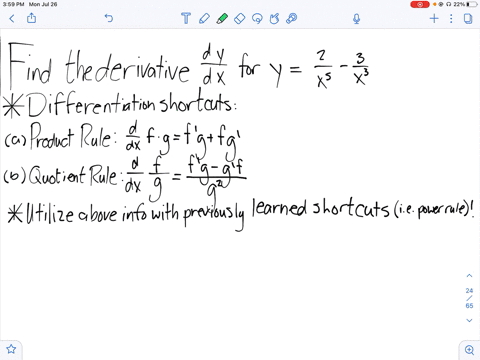 3:59 PM Mon Jul 26
22%
Find the derivative dy/dx for y = 2/x⁵ - 3/x³
*Differentiation shortcuts:
(a) Product Rule: d/dx f·g = f'g + fg'
(b) Quotient Rule: d/dx f/g = (f'g - g'f)/g²
*Utilize above info with previously learned shortcuts (i.e. power rule)!
24
/
65